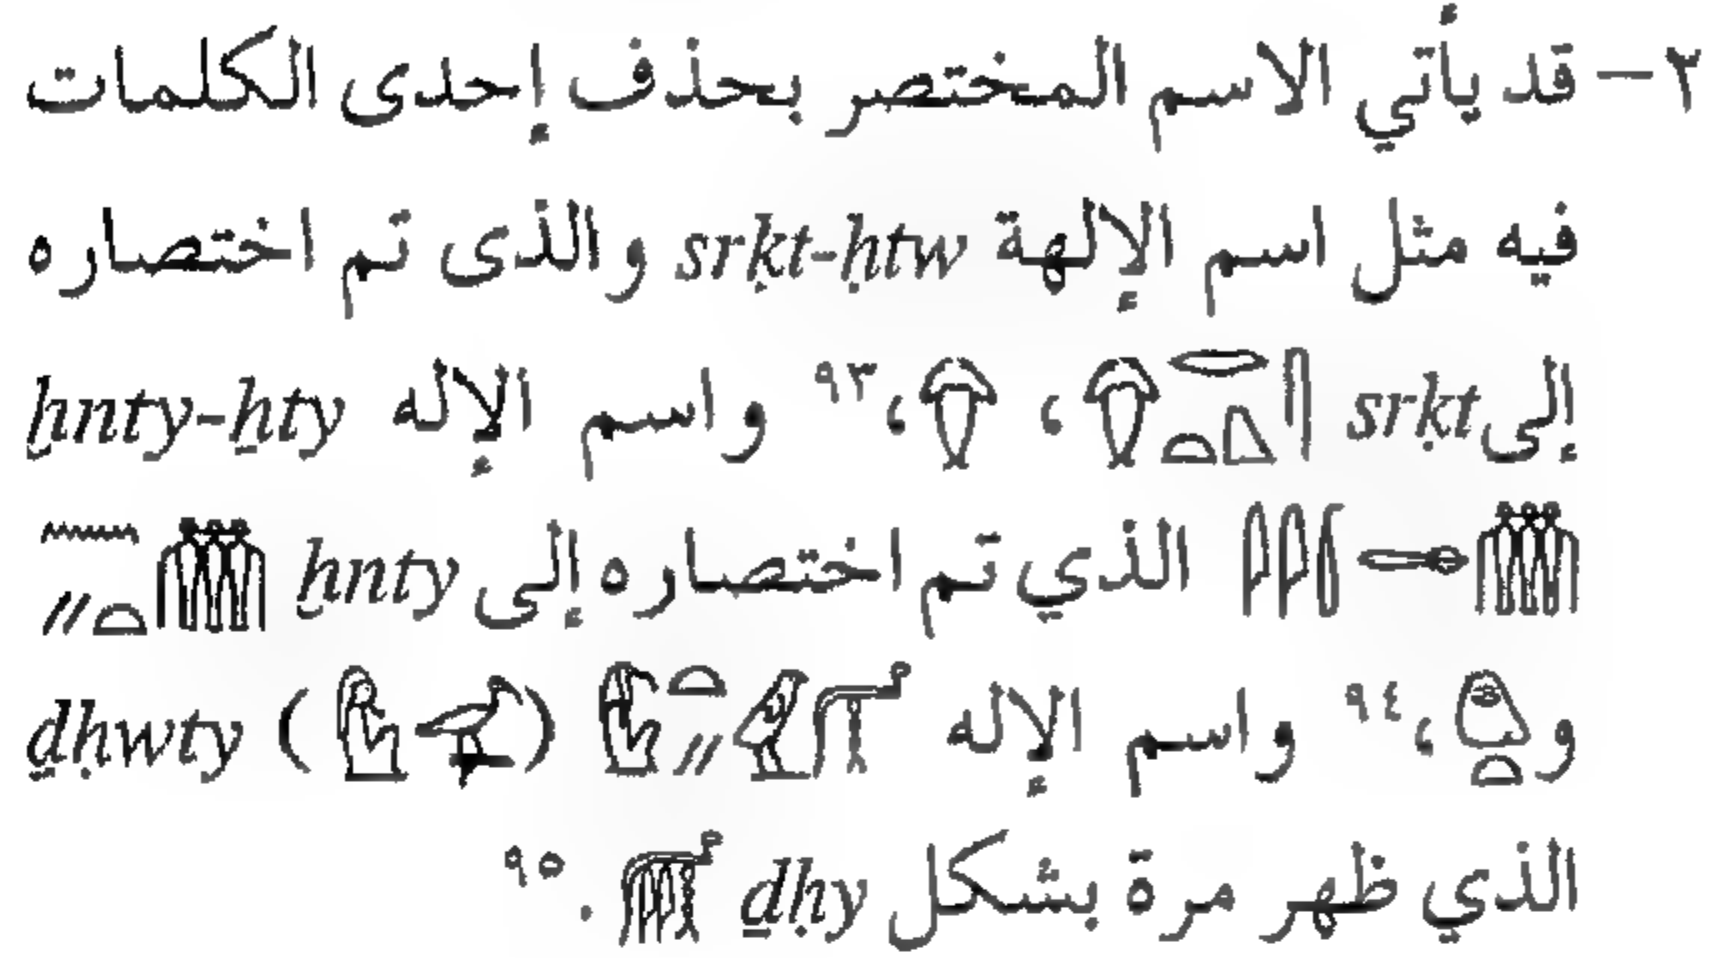 ٣- قد يأتي الاسم المختصر بحذف إحدى الكلمات
فيه مثل اسم الإلهة srḳt-ḥtw والذى تم اختصاره
إلى srḳt ، ،٩٣ واسم الإله ẖnty-ẖty
الذي تم اختصاره إلى ẖnty
و ،٩٤ واسم الإله ( ) ḏḥwty
الذي ظهر مرة بشكل ḏḥy .٩٥